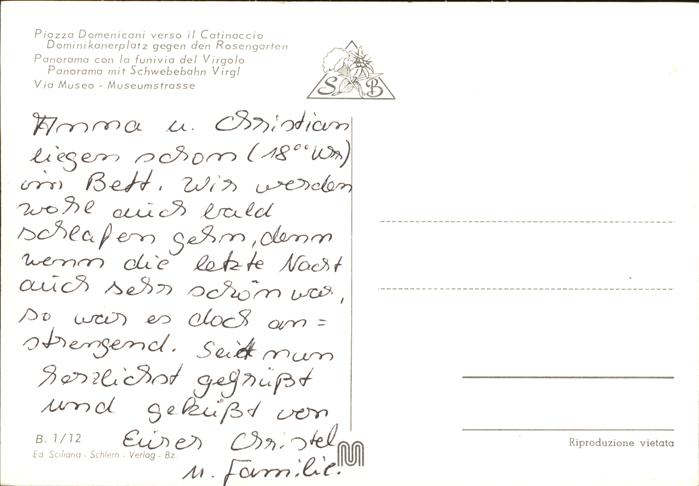 Piazza Domenicani verso il Catinaccio
Dominikanerplatz gegen den Rosengarten
Panorama con la funivia del Virgolo
Panorama mit Schwebebahn Virgl
Via Museo - Museumstrasse
S B
Anna u. Christian
liegen schon (18°° Uhr)
im Bett. Wir werden
wohl auch bald
schlafen gehn, denn
wenn die letzte Nacht
auch sehr schön war,
so war es doch an=
strengend. Seid nun
herzlichst gegrüßt
und geküßt von
Eurer Christel
u. Familie.
B. 1/12
Ed. Sciliana - Schlern - Verlag - Bz.
Riproduzione vietata